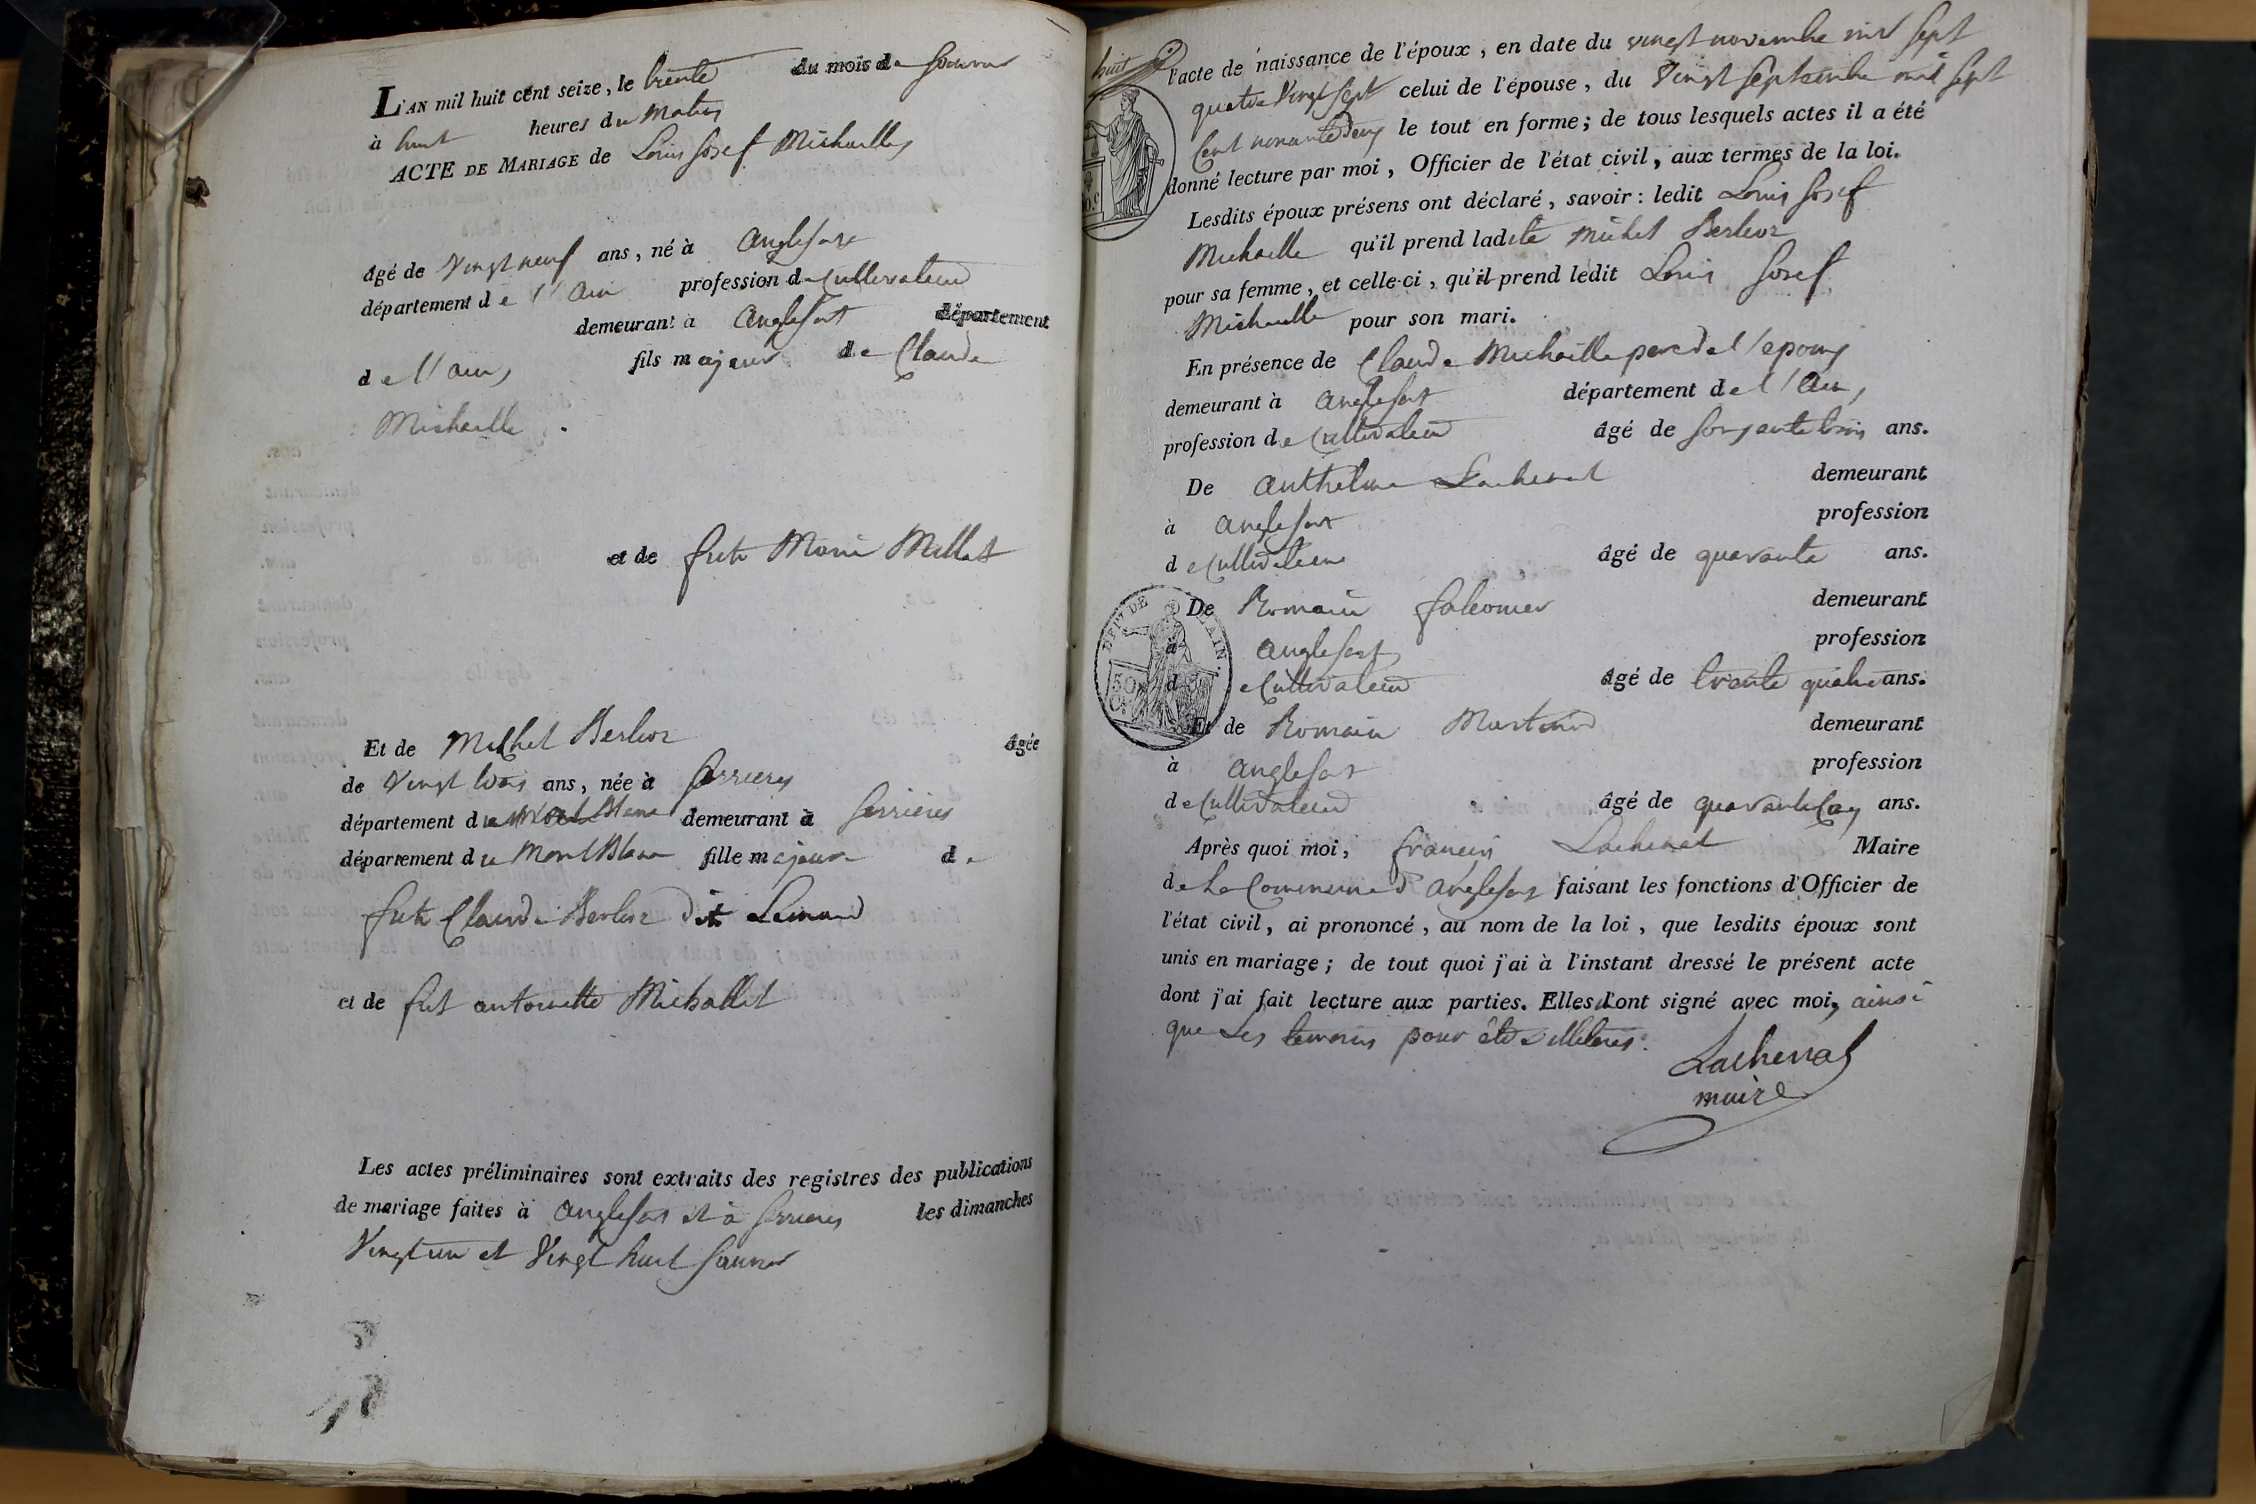 L'AN mil huit cent seize, le trente du mois de Janvier
à huit heures du Matin
ACTE DE MARIAGE de Louis Josef Michaille
âgé de Vingt neuf ans, né à Anglefort
département de l'Ain profession de Cultivateur
demeurant à Anglefort département
de l'ain, fils majeur de Claude
Michaille.
et de fute Marie Millet
Et de Michel Berlioz âgée
de Vingt trois ans, née à Serrieres
département du Mont Blanc demeurant à Serrières
département du Mont Blanc fille majeure de
fute Claude Berlioz dit
et de fut antoinette Michallet
Les actes préliminaires sont extraits des registres des publications
de mariage faites à Anglefort et à Serrieres les dimanches
Vingt un et Vingt huit Janvier
huit
l'acte de naissance de l'époux, en date du vingt novembre mil sept
quatre Vingt Sept celui de l'épouse, du Vingt Septembre mil sept
Cent nonante deux le tout en forme; de tous lesquels actes il a été
donné lecture par moi, Officier de l'état civil, aux termes de la loi.
Lesdits époux présens ont déclaré, savoir: ledit Louis Josef
Michaille qu'il prend ladite Michel Berlioz
pour sa femme, et celle-ci, qu'il prend ledit Louis Josef
Michaille pour son mari.
En présence de Claude Michaille pere de l'epoux
demeurant à Anglefort département de l'Ain,
profession de Cultivateur âgé de soixante trois ans.
De Anthelme Lachenal demeurant
à Anglefort profession
de Cultivateur âgé de quarante ans.
De Romain falconier demeurant
à Anglefort profession
de Cultivateur âgé de trente quatre ans.
DEPT DE L'AIN.
50 C.
Et de Romain Martinod demeurant
à Anglefort profession
de Cultivateur âgé de quarante Cinq ans.
Après quoi moi, francois Lachenal Maire
de La Commune d'Anglefort faisant les fonctions d'Officier de
l'état civil, ai prononcé, au nom de la loi, que lesdits époux sont
unis en mariage; de tout quoi j'ai à l'instant dressé le présent acte
dont j'ai fait lecture aux parties. Elles l'ont signé avec moi, ainsi
que Les temoins pour être
Lachenal
maire